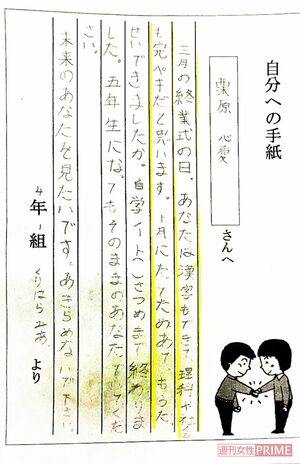 自分への手紙
栗原 心愛 さんへ
三月の終業式の日。あなたは漢字もできて、理科や社会
も完ペキだと思います。十月にたてためあて、もうた
せいできましたか。自学ノートへんさつめまで終わりま
した。五年生になってもそのままのあなたでいてくだ
さい。
未来のあなたを見たいです。あきらめないで下さい。
4年1組 くりはら みあ より
週刊女性PRIME